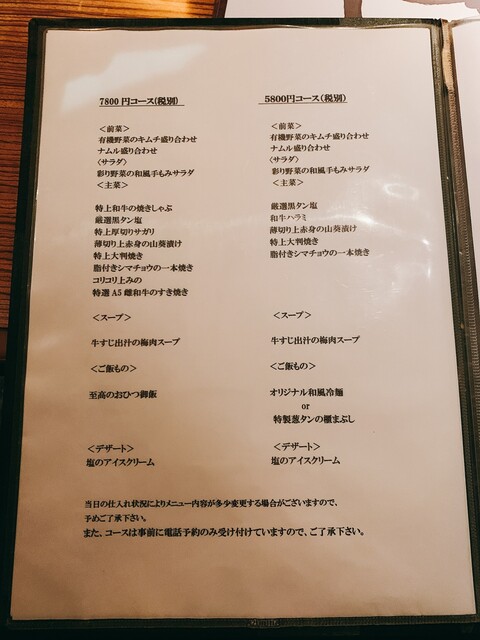 7800 円コース(税別)
＜前菜＞
有機野菜のキムチ盛り合わせ
ナムル盛り合わせ
〈サラダ〉
彩り野菜の和風手もみサラダ
＜主菜＞
特上和牛の焼きしゃぶ
厳選黒タン塩
特上厚切りサガリ
薄切り上赤身の山葵漬け
特上大判焼き
脂付きシマチョウの一本焼き
コリコリ上みの
特選 A5 雌和牛のすき焼き
＜スープ＞
牛すじ出汁の梅肉スープ
＜ご飯もの＞
至高のおひつ御飯
＜デザート＞
塩のアイスクリーム
5800円コース(税別)
＜前菜＞
有機野菜のキムチ盛り合わせ
ナムル盛り合わせ
〈サラダ〉
彩り野菜の和風手もみサラダ
＜主菜＞
厳選黒タン塩
和牛ハラミ
薄切り上赤身の山葵漬け
特上大判焼き
脂付きシマチョウの一本焼き
＜スープ＞
牛すじ出汁の梅肉スープ
＜ご飯もの＞
オリジナル和風冷麺
or
特製葱タンの櫃まぶし
＜デザート＞
塩のアイスクリーム
当日の仕入れ状況によりメニュー内容が多少変更する場合がございますので、
予めご了承下さい。
また、コースは事前に電話予約のみ受け付けていますので、ご了承下さい。